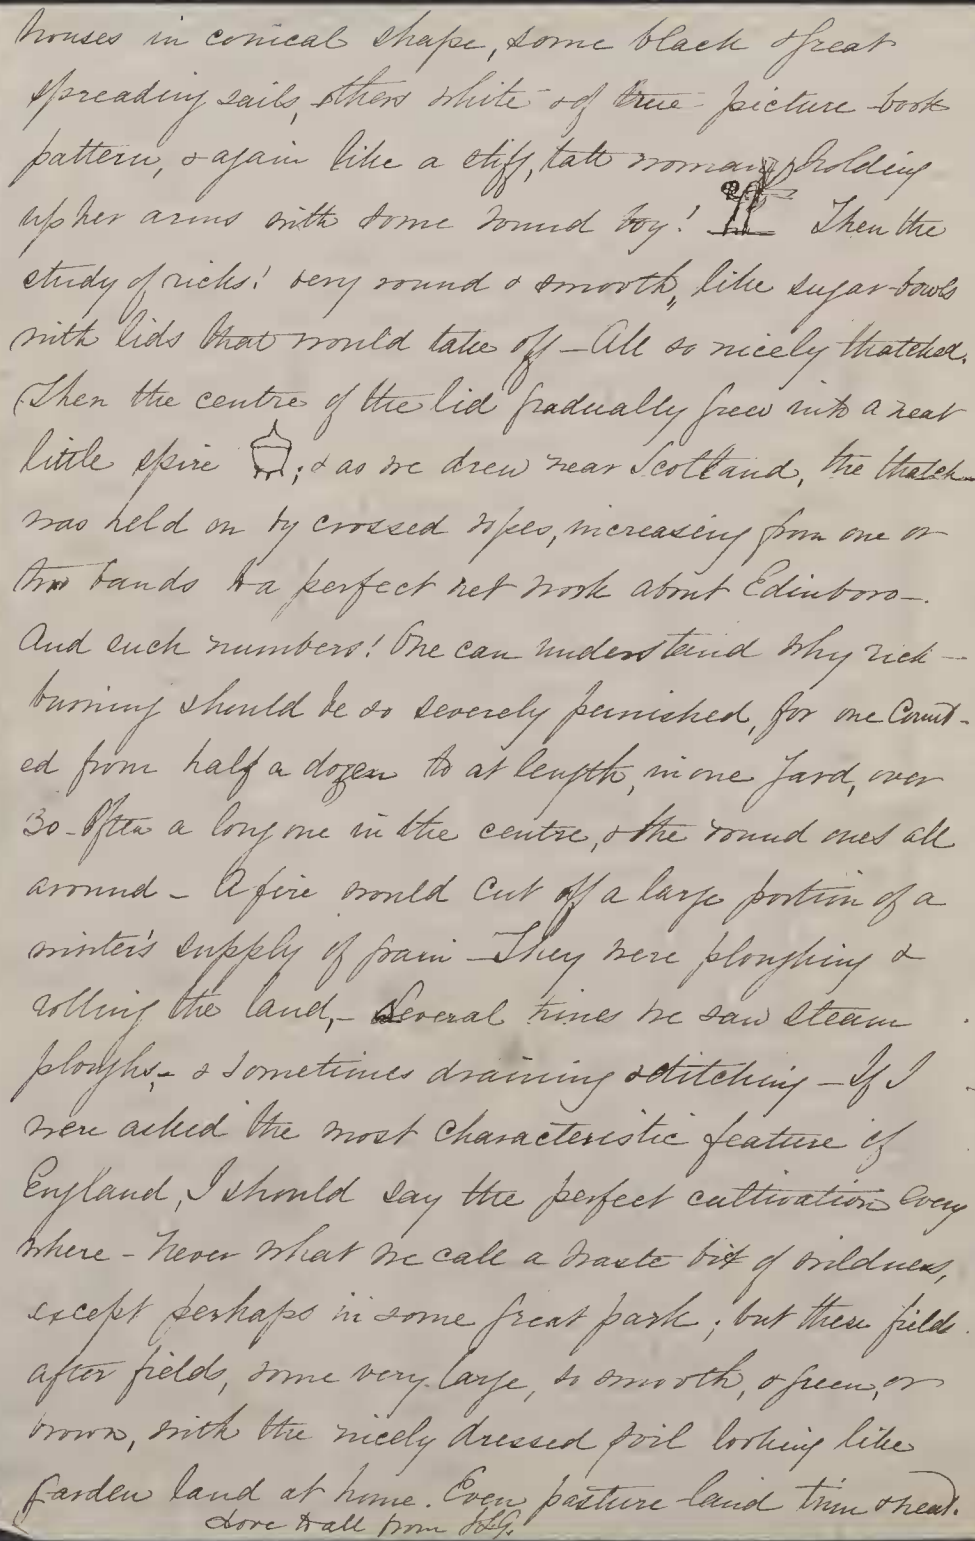 houses in conical shape, some black & great
spreading sails, others white & of true picture-book
pattern, & again like a stiff, tall woman, holding
up her arms with some round toy! Then the
study of ricks! very round & smooth, like sugar-bowls
with lids that would take off - All so nicely thatched.
Then the centre of the lid gradually grew into a neat
little spire ; & as we drew near Scotland, the thatch
was held on by crossed ropes, increasing from one or
two bands to a perfect net work about Edinboro-.
And such numbers! One can understand why rick-
burning should be so severely punished, for one count-
ed from half a dozen to at length, in one yard, over
30 - Often a long one in the centre, & the round ones all
around - A fire would cut off a large portion of a
winter's supply of grain - They were ploughing &
rolling the land, - Several times we saw steam
ploughs, - & sometimes draining & ditching - If I
were asked the most characteristic feature of
England, I should say the perfect cultivation every
where - Never what we call a waste bit of wildness,
except perhaps in some great park ; but these fields
after fields, some very large, so smooth, & green, or
brown, with the nicely dressed soil looking like
garden land at home. Even pasture-land trim & neat.
Love to all from